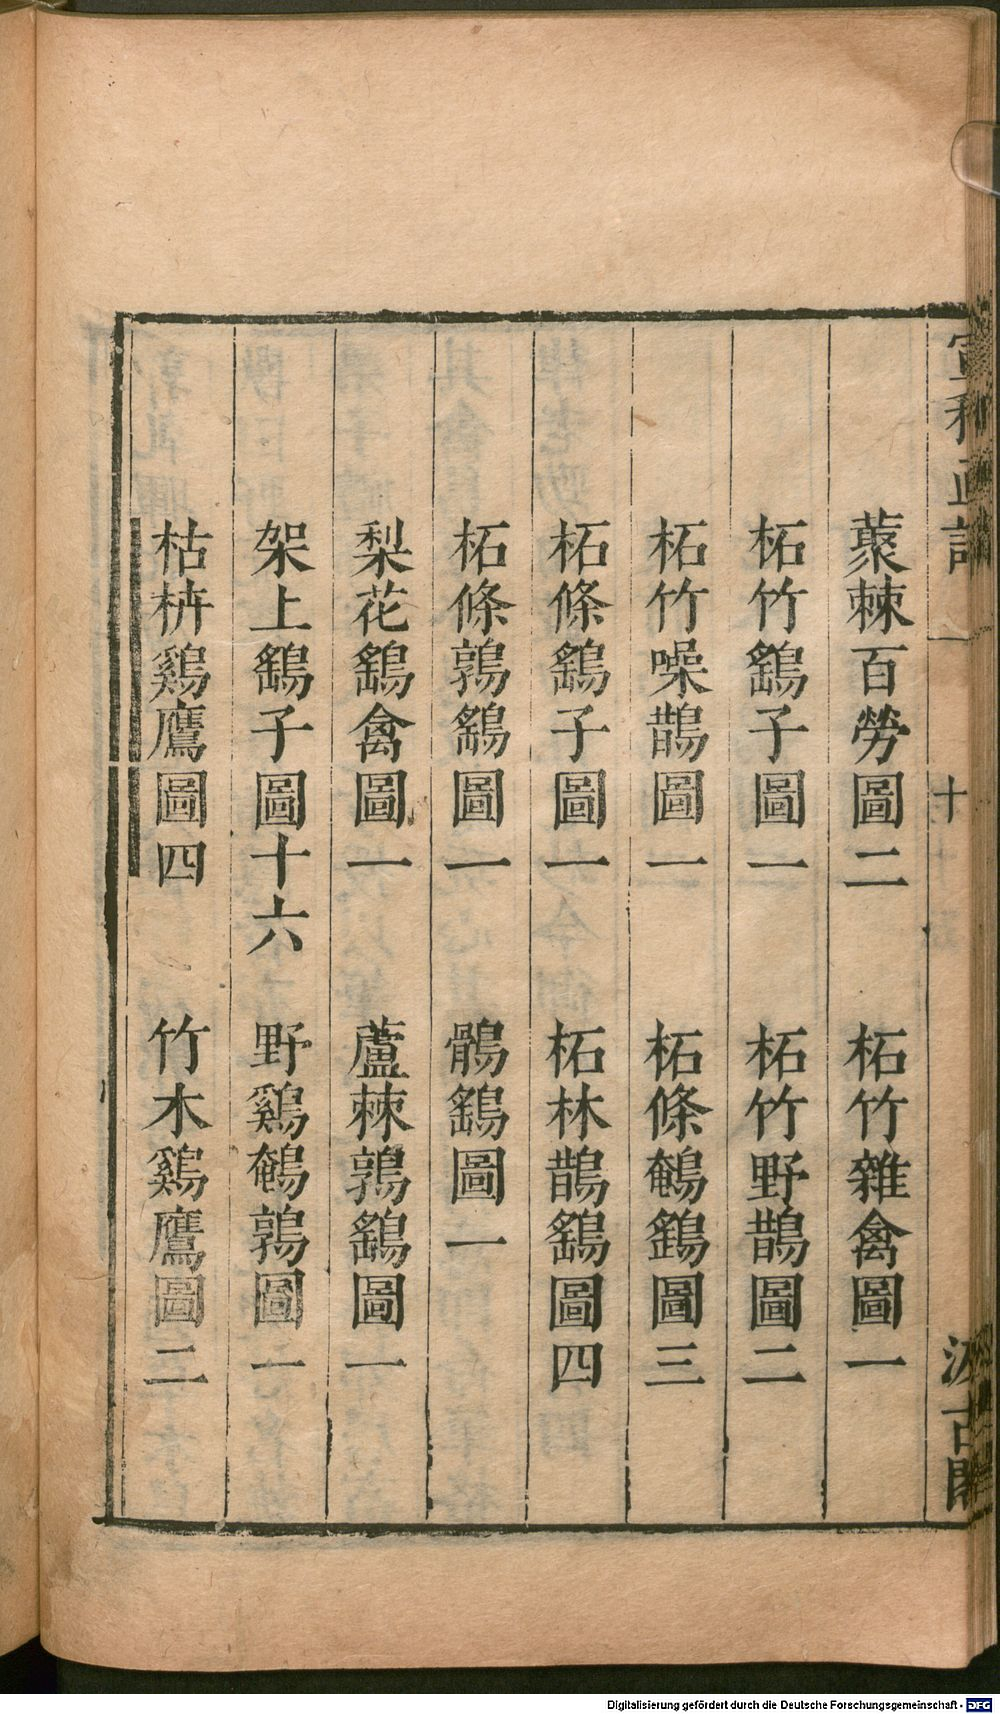 汲古閣
藂棘百勞圖二　柘竹雜禽圖一
柘竹鷂子圖一　柘竹野鵲圖二
柘竹噪鵲圖一　柘條鵪鷂圖三
柘條鷂子圖一　柘林鵲鷂圖四
柘條鶉鷂圖一　鶻鷂圖一
梨花鷂禽圖一　蘆棘鶉鷂圖一
架上鷂子圖十六　野鷄鵪鶉圖一
枯枿鷄鷹圖四　竹木鷄鷹圖二
Digitalisierung gefördert durch die Deutsche Forschungsgemeinschaft - DFG